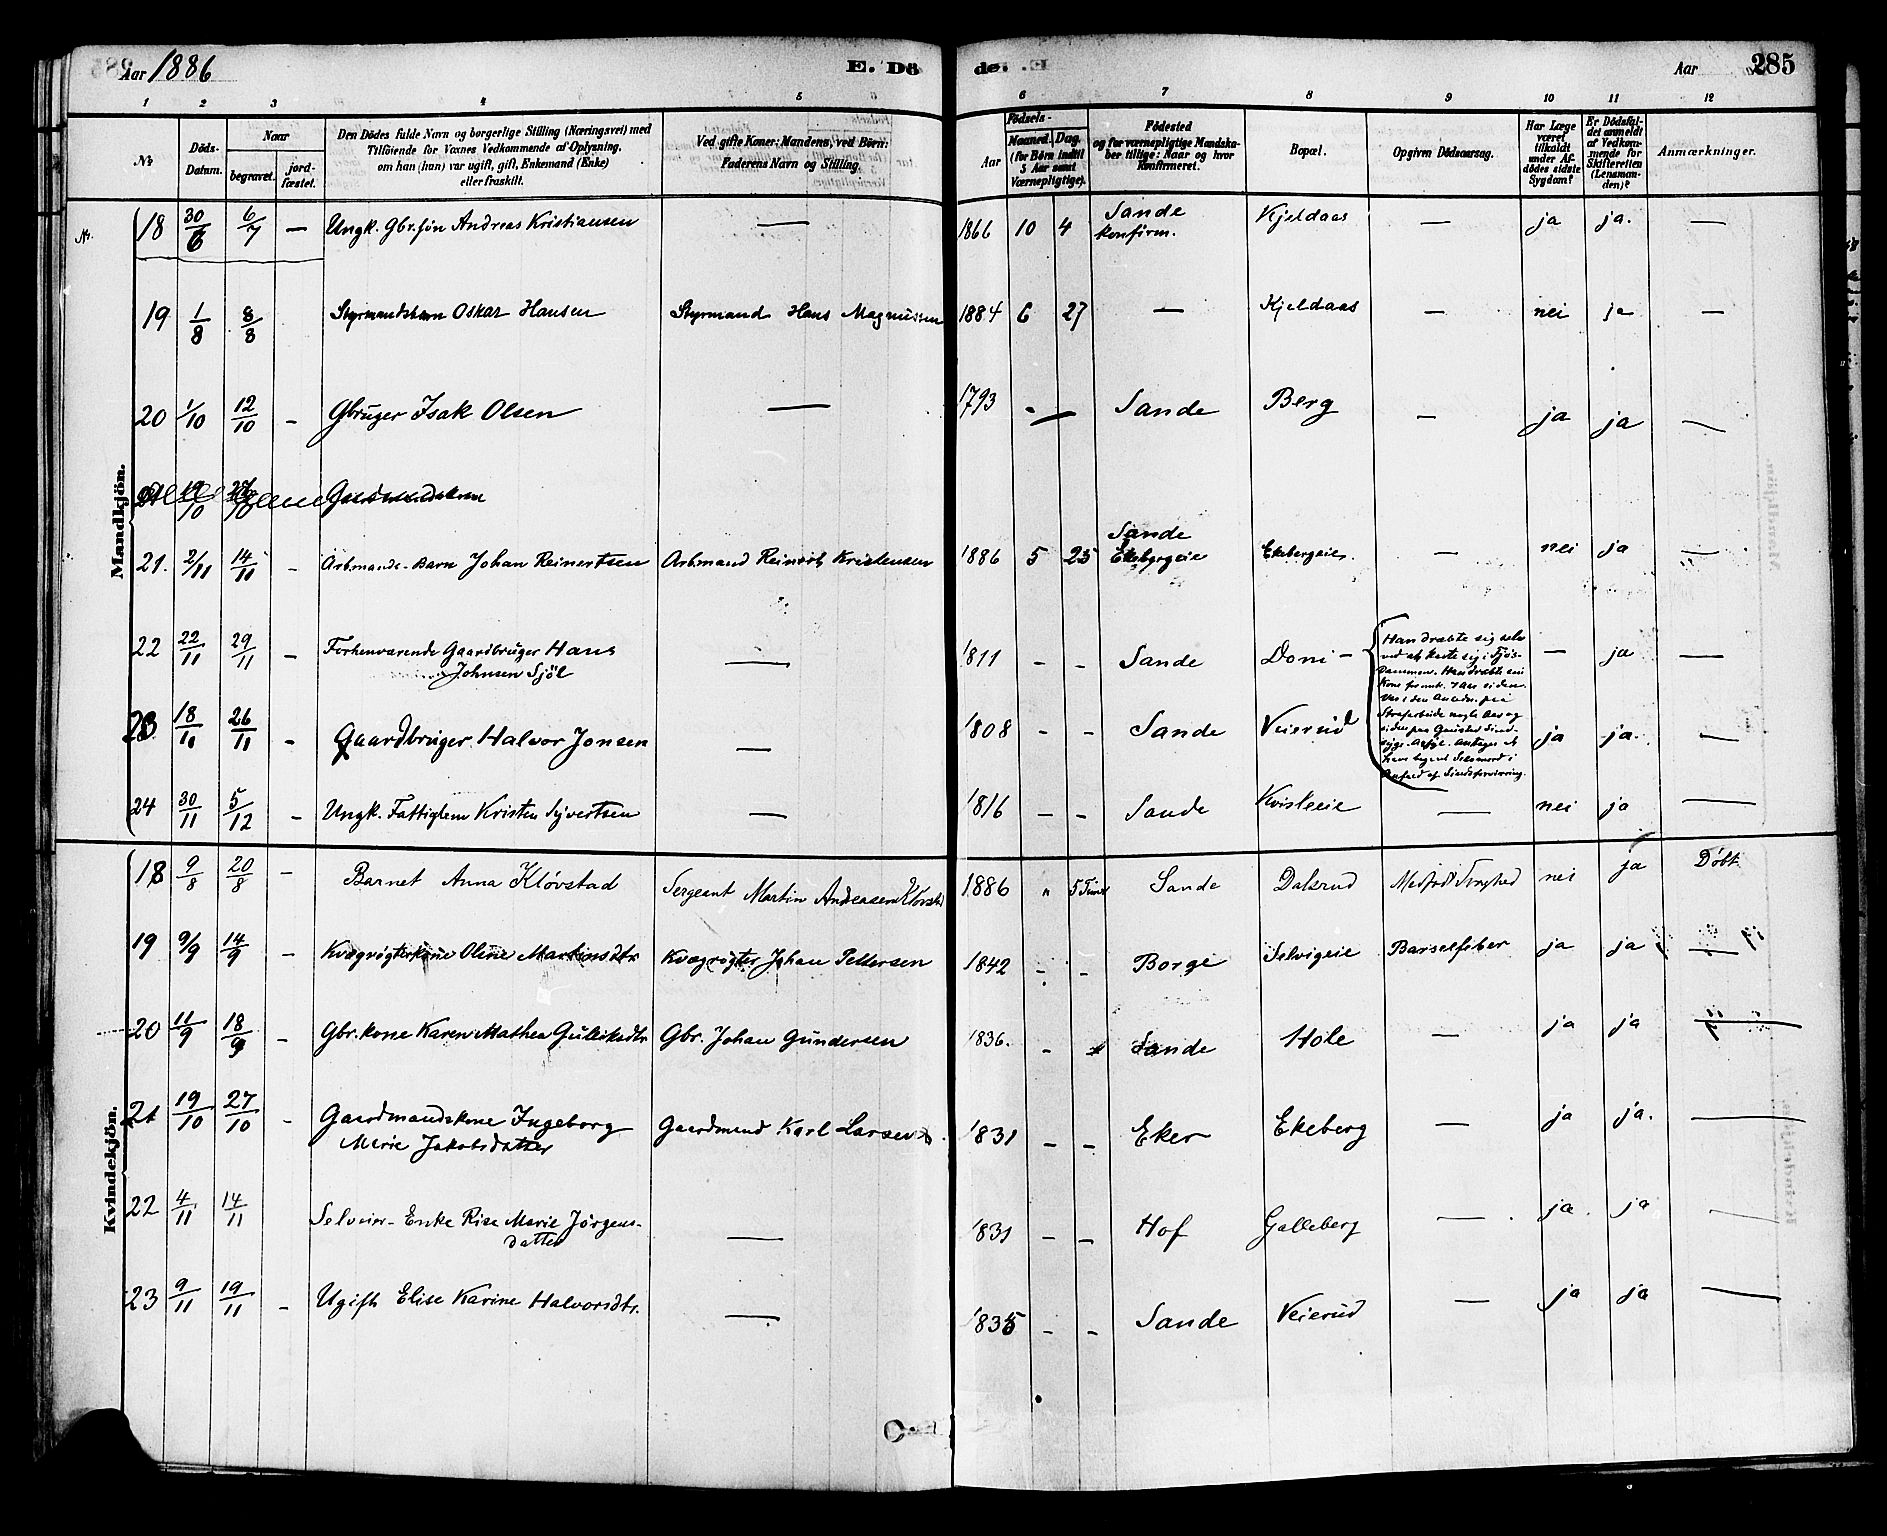 Aar 1886 E. Dö de. Aar 285
1 2 3 4 5 6 7 8 9 10 11 12
No Döds-Datum. Naar begravet. jord-fæstet. Den Dödes fulde Navn og borgerlige Stilling (Næringsvei) med Tilföiende for Voxnes Vedkommende af Oplysning, om han (hun) var ugift, gift, Enkemand (Enke) eller fraskilt. Ved gifte Koner: Mandens, ved Börn: Faderens Navn og Stilling. Födsels- Aar Maaned. Dag. (for Börn indtil 5 Aar samt Værnepligtige). Födested og for værnepligtige Mandskaber tillige: Naar og hvor Konfirmeret. Bopæl. Opgiven Dödsaarsag. Har Læge været tilkaldt under Afdödes sidste Sygdom? Er Dödsfaldet anmeldt af Vedkommende for Skifteretten (Lensmanden)? Anmærkninger.
Mandkjön.
18 30/6 6/7 — Ungk. Gbr.søn Andreas Kristiansen — 1866 10 4 Sande konfirm. Kjeldaas — ja ja. —
19 1/8 8/8 Styrmandsbarn Oskar Hansen Styrmand Hans Magnussen 1884 6 27 — Kjeldaas — nei ja —
20 1/10 12/10 – Gbruger Isak Olsen — 1793 – Sande Berg — ja ja —
Gaardmandskone
21. 2/11 14/11 – Arbmands-Barn Johan Reinertsen Arbmand Reinert Kristensen 1886 5 25 Sande Ekebergeie Ekebergeie. — nei ja —
22 22/11 29/11 – Forhenværende Gaardbruger Hans Johnsen Sjöl — 1811 - - Sande Doni – Han dræbte sig selv
ved at kaste sig i
Dammen. Han dræbte sin
Kone 7 Aar siden.
Strafarbeide nogle Aar og
siden paa Gausted Sind-
have begaaet Selvmord i
Anfald af Sindsforvirring. — ja —
23 18/11 26/11 – Gaardbruger Halvor Jonsen — 1808 - - Sande Veierud ja ja. —
24 30/11 5/12 – Ungk. Fattiglem Kristen Syvertsen — 1816 – – Sande Kvisleeie — nei ja —
Kvindekjön.
18 9/8 20/8 – Barnet Anna Kløvstad Sergeant Martin Andreasen Kløvstad 1886 " 5 Timer Sande Dalsrud Medfødt Svaghed nei ja Døbt
19 9/9 14/9 – Kvægrøgterkone Oline Martinsdtr Kvægrøgter Johan Pettersen 1842 - - Borge Selvigeie Barselfeber ja ja —
20 11/9 18/9 – Gbr. kone Karen Mathea Gulliksdtr Gbr. Johan Gundersen 1836. - Sande Hole — ja ja —
21 19/10 27/10 – Gaardmandskone Ingeborg Marie Jakobsdatter Gaardmand Karl Larsen 1831 – – Eker Ekeberg — ja ja. —
22 4/11 14/11 Selveier-Enke Rise Marie Jörgensdatter — 1831 – – Hof Galleberg — ja ja —
23 9/11 19/11 – Ugift Elise Karine Halvorsdtr. — 1835 – – Sande Veierud — ja ja —